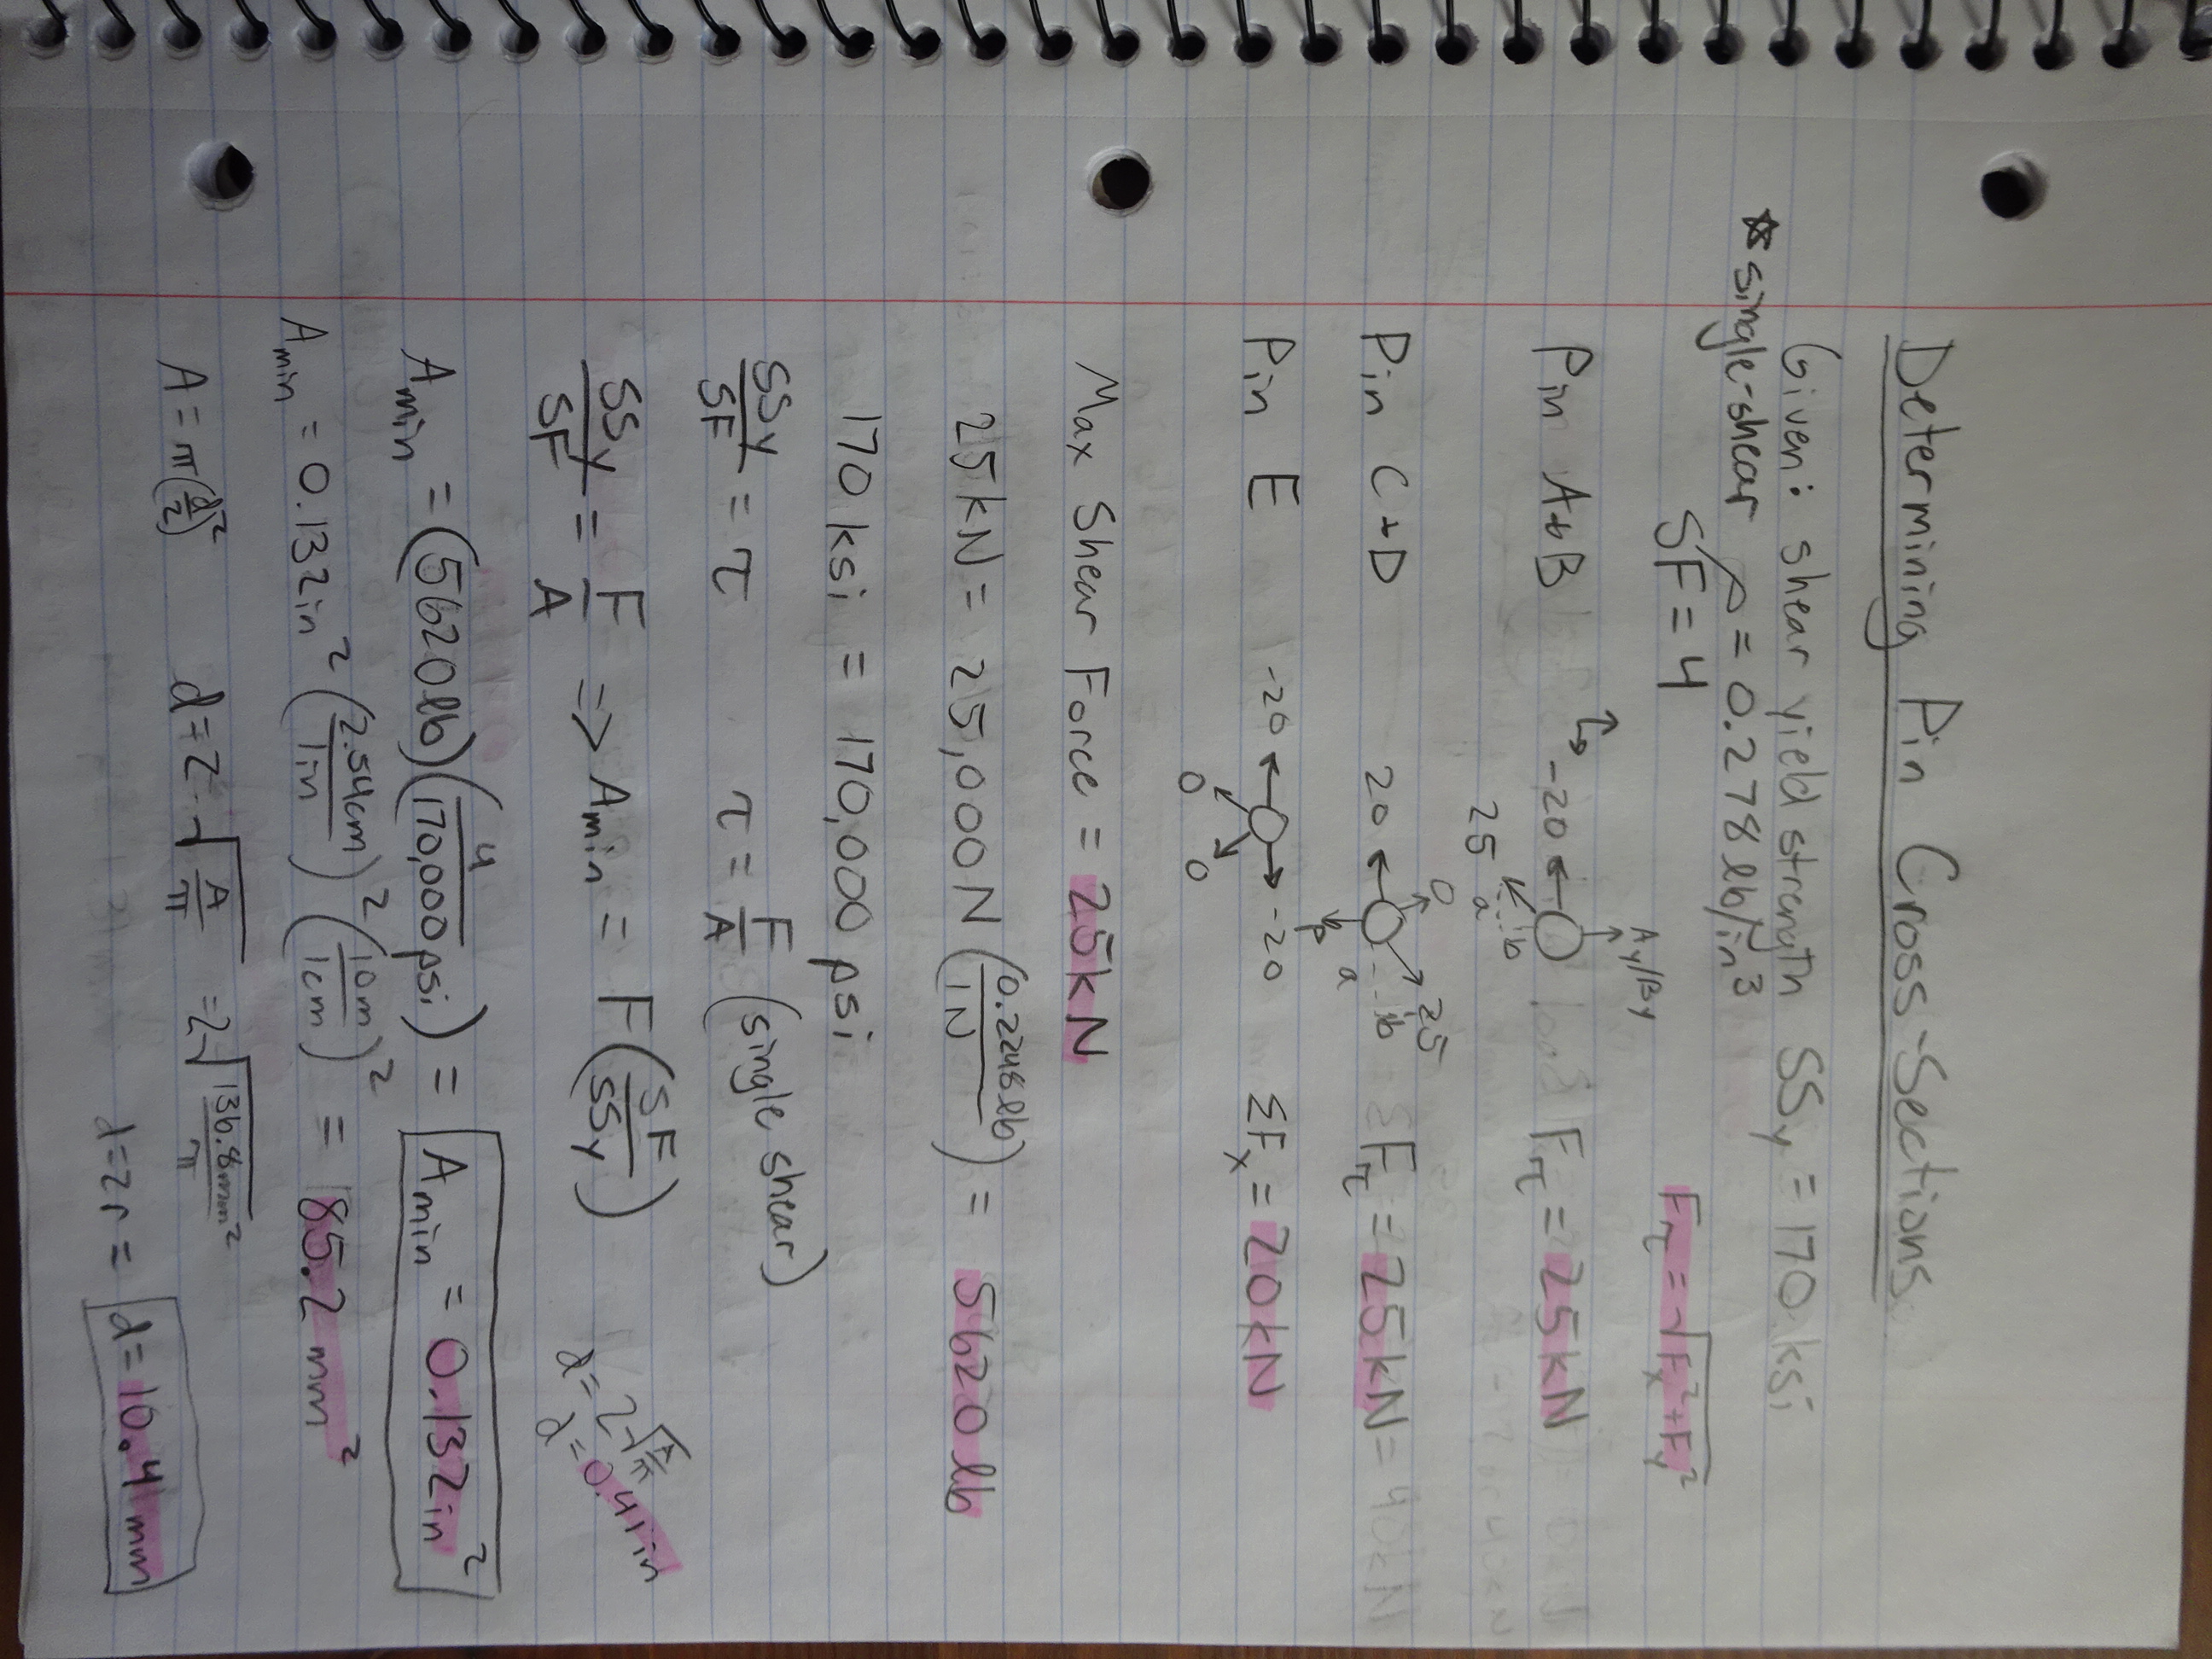 Determining Pin Cross-Sections
Given: shear yield strength SSy = 170 ksi
*single-shear ρ = 0.278 lb/in³
SF = 4
Fτ = √Fx²+Fy²
Ay/By
Pin A+B -20 Fτ = 25kN
25
a b
Pin C+D 20 0 25 Fτ = 25kN = 40kN
a b
Pin E -20 -20 ΣFx = 20kN
0 0
Max Shear Force = 25kN
25kN = 25,000N (0.2248lb/1N) = 5620 lb
170 ksi = 170,000 psi
SSy/SF = τ τ = F/A (single shear)
SSy/SF = F/A => Amin = F(SF/SSy)
d = 2√A/π
d = 0.41in
Amin = (5620lb)(4/170,000psi) = Amin = 0.132in²
Amin = 0.132in² (2.54cm/1in)² (10m/1cm)² = 85.2 mm²
A = π(d/2)² d = 2·√A/π = 2√136.8mm²/π
d=2r = d = 10.4mm